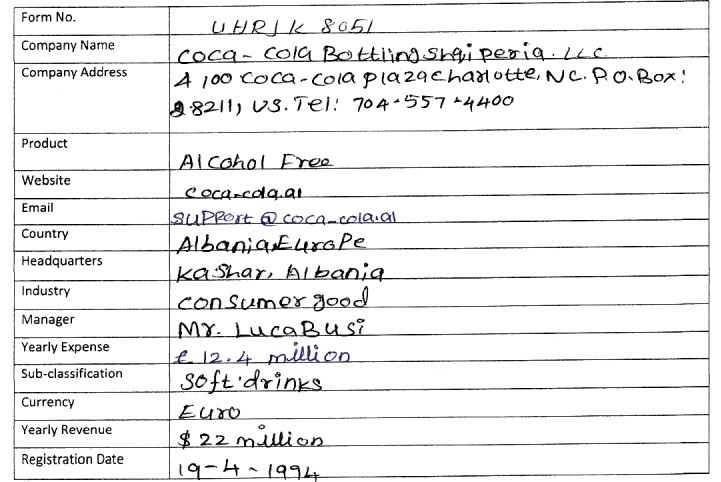 Form No. UHRJK 8051
Company Name Coca-Cola Bottling Shqiperia. LLC
Company Address 4100 Coca-Cola Plaza Charlotte, NC. P.O. Box:
28211, US. Tel: 704-557-4400
Product Alcohol Free
Website coca-cola.al
Email support@coca-cola.al
Country Albania, Europe
Headquarters Kashar, Albania
Industry consumer good
Manager Mr. Luca Busi
Yearly Expense £ 12.4 million
Sub-classification Soft drinks
Currency Euro
Yearly Revenue $ 22 million
Registration Date 19-4-1994